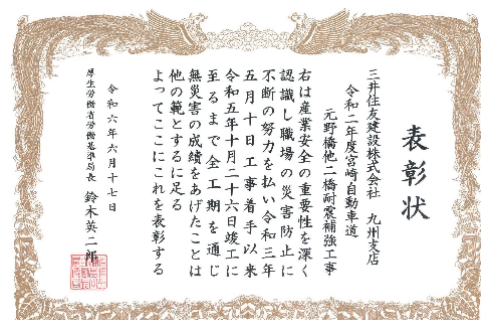 表彰状
三井住友建設株式会社 九州支店
令和二年度宮崎自動車道
元野橋他二橋耐震補強工事
右は産業安全の重要性を深く
認識し職場の災害防止に
不断の努力を払い令和三年
五月十日工事着手以来
令和五年十月二十六日竣工に
至るまで全工期を通じ
無災害の成績をあげたことは
他の範とするに足る
よってここにこれを表彰する
令和六年六月十七日
厚生労働省労働基準局長 鈴木英二郎